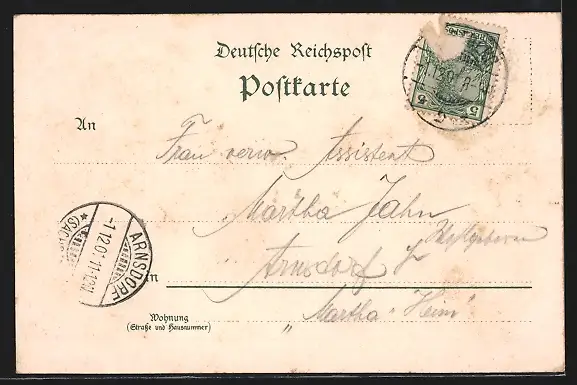 Deutsche Reichspost
Postkarte
An
Frau verw. Assistent
Martha Jahn
Arnsdorf
in
Wohnung
(Straße und Hausnummer)
„Martha-Heim"
ARNSDORF
-1.12.01.11-12V.
(SACHSEN)
5 5